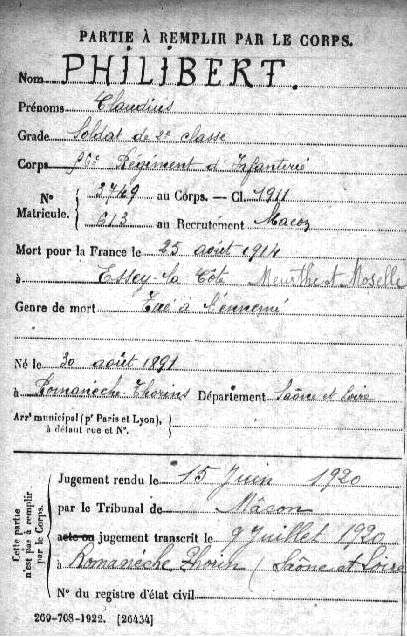 PARTIE À REMPLIR PAR LE CORPS.
Nom PHILIBERT.
Prénoms Claudius
Grade Soldat de 2e classe
Corps Régiment d'Infanterie
N° Matricule. { 2749 au Corps. — Cl. 1911
613 au Recrutement Macon
Mort pour la France le 25 août 1914
à Essey-la Côte Meurthe et Moselle
Genre de mort Tué à l'ennemi
Né le 30 août 1891
à Romanèche Thorins Département Saône et Loire
Arrt municipal (pr Paris et Lyon), à défaut rue et N°.
Cette partie n'est pas à remplir par le Corps.
Jugement rendu le 15 Juin 1920
par le Tribunal de Mâcon
acte ou jugement transcrit le 9 Juillet 1920
à Romanèche Thorin (Saône et Loire
N° du registre d'état civil
269-708-1922. [26434]